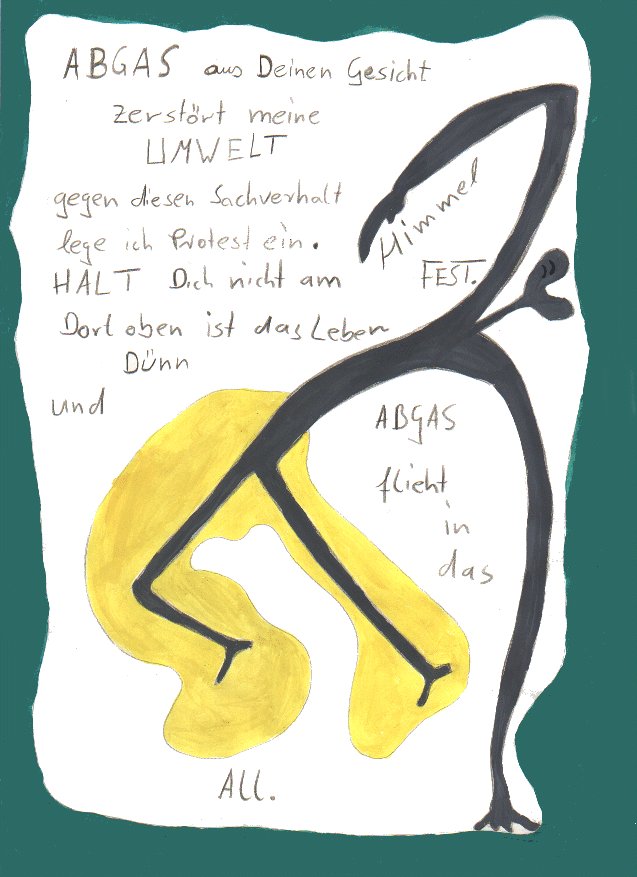 ABGAS aus Deinen Gesicht
zerstört meine
UMWELT
gegen diesen Sachverhalt
lege ich Protest ein.
HALT Dich nicht am
Himmel
FEST.
Dort oben ist das Leben
Dünn
und
ABGAS
flieht
in
das
All.